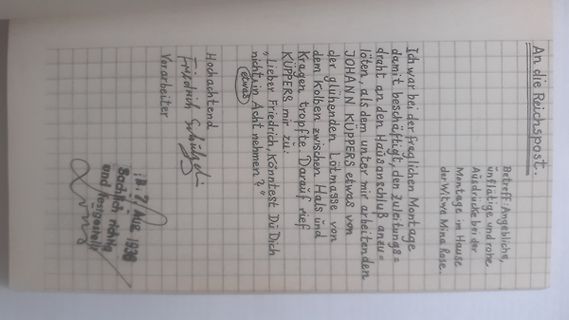 An die Reichspost.
Betreff: Angebliche,
unflätige und rohe
Ausdrücke bei der
Montage im Hause
der Witwe Mina Rose.
Ich war bei der fraglichen Montage
damit beschäftigt, den Zuleitungs=
draht an den Hausanschluß anzu=
löten, als dem unter mir arbeitenden
JOHANN KÜPPERS etwas von
der glühenden Lötmasse von
dem Kolben zwischen Hals und
Kragen tropfte. Darauf rief
KÜPPERS mir zu:
"Lieber Friedrich, könntest Du Dich
nicht in Acht nehmen?"
etwas
Hochachtend
Friedrich
Vorarbeiter
Aug. 1938
Sachlich richtig
und festgestellt